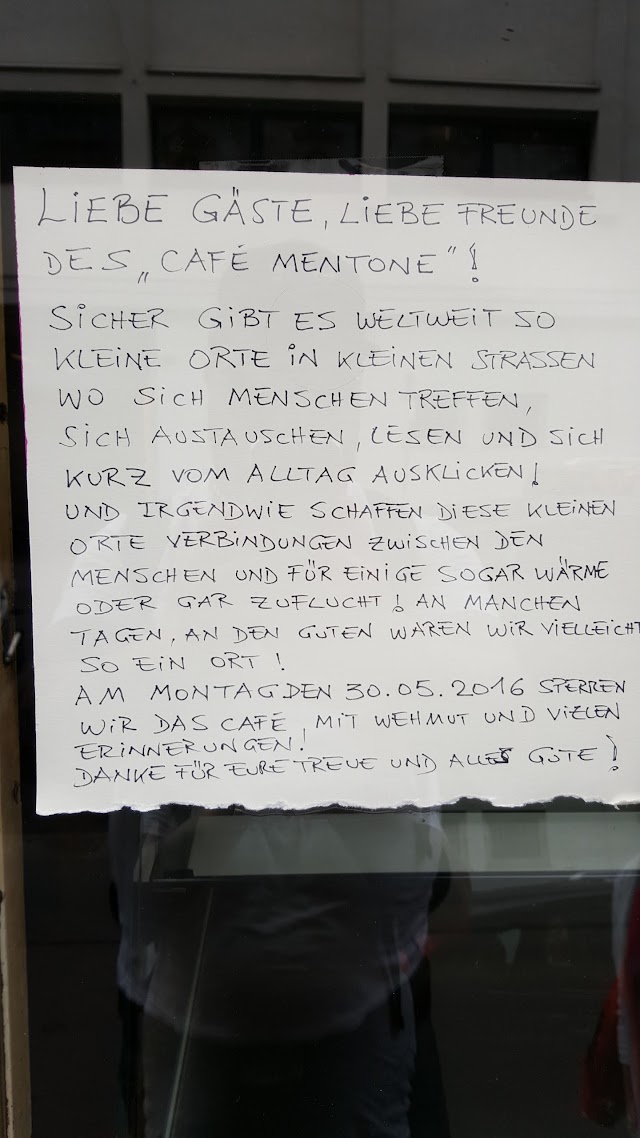 LIEBE GÄSTE, LIEBE FREUNDE
DES „CAFÉ MENTONE"!
SICHER GIBT ES WELTWEIT SO
KLEINE ORTE IN KLEINEN STRASSEN
WO SICH MENSCHEN TREFFEN,
SICH AUSTAUSCHEN, LESEN UND SICH
KURZ VOM ALLTAG AUSKLICKEN!
UND IRGENDWIE SCHAFFEN DIESE KLEINEN
ORTE VERBINDUNGEN ZWISCHEN DEN
MENSCHEN UND FÜR EINIGE SOGAR WÄRME
ODER GAR ZUFLUCHT! AN MANCHEN
TAGEN, AN DEN GUTEN WAREN WIR VIELLEICHT
SO EIN ORT!
AM MONTAG DEN 30.05.2016 SPERREN
WIR DAS CAFÉ, MIT WEHMUT UND VIELEN
ERINNERUNGEN!
DANKE FÜR EURE TREUE UND ALLES GUTE!